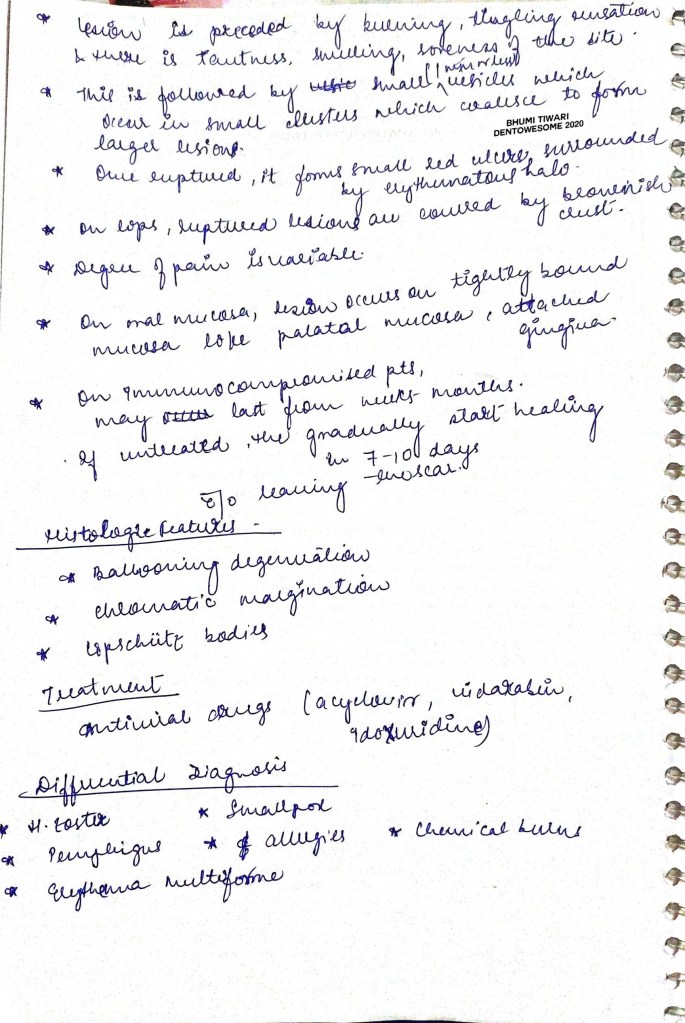 * Lesion is preceded by burning, tingling sensation
& there is tautness, swelling, soreness of the site.
* This is followed by small vesicles which
occur in small clusters which coalesce to form
larger lesions.
BHUMI TIWARI
DENTOWESOME 2020
* Once ruptured, it forms small red ulcers, surrounded
by erythematous halo.
* On lips, ruptured lesions are covered by brownish
crust.
* Degree of pain is variable.
* On oral mucosa, lesion occurs on tightly bound
mucosa like palatal mucosa, attached
gingiva.
* On immunocompromised pts,
may last from weeks-months.
. If untreated, the gradually start healing
in 7-10 days
leaving scar.
Histologic Features -
* Ballooning degeneration
* Chromatic margination
* Lipschütz bodies
Treatment
Antiviral drugs (acyclovir, vidarabin,
idoxuridine)
Differential Diagnosis
* H. Zoster * Smallpox
* Pemphigus * allergies * Chemical burns
* Erythema multiforme